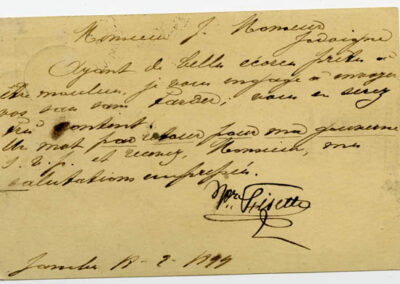 Monsieur J. Monseur
Jodoigne
Ayant de belles écorces prêtes à
être moulues, je vous engage à envoyer
vos sacs sans tarder; vous en serez
très content.
Un mot par retour pour ma gouverne
S. V. P. et recevez, Monsieur, mes
salutations empressées.
Jambes 18-2-1899